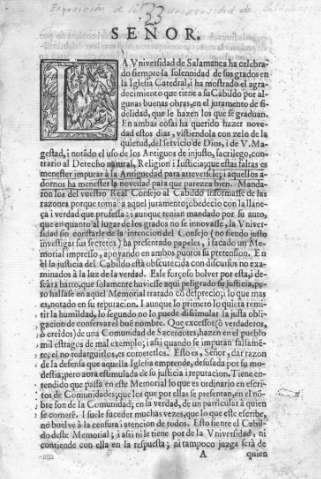 23
SEÑOR.
LA Vniversidad de Salamanca ha celebra-
do siempre la solenidad de sus grados en
la Iglesia Catedral, i ha mostrado el agra-
decimiento que tiene a su Cabildo por al-
gunas buenas obras, en el juramento de fi-
delidad, que le hazen los que se graduan.
En ambas cosas ha querido hazer nove-
dad estos dias, vistiendola con zelo de la
quietud, del servicio de Dios, i de V. Ma-
gestad, i notãdo el uso de los Antiguos de injusto, sacrilego, con-
trario al Derecho natural, Religion i Iusticia; que estas faltas es
menester imputar à la Antiguedad para
adornos ha menester la novedad para que parezca bien. Manda-
ron los del vuestro Real Consejo al Cabildo informasse de las
razones porque toma a aquel juramento; obedecio con la llane-
ça i verdad que professa: i aunque tenian mandado por su auto,
que en quanto al lugar de los grados no se innovasse, la Vniver-
sidad sin
investigar sus secretos) ha presentado papeles, i sacado un Me-
morial impresso, apoyando en ambos puntos su pretension. En
èl la justicia del Cabildo està obscurecida con discursos no exa-
minados à la luz de la verdad. Esle forçoso bolver por esta, i de-
seàra harto, que solamente huviesse aqui peligrado su justicia, pe-
ro hallase en aquel Memorial tratado cõ desprecio; i lo que mas
es, notado en su reputacion. I aunque lo primero lo quiera remi-
tir la humildad, lo segundo no lo puede dissimular la justa obli-
gacion de conservar el buẽ nombre. Que excessos (ò verdaderos,
ò creidos) de una Comunidad de Sacerdotes, hazen en el pueblo
mil estragos de mal exemplo; i assi quando se imputan falsamẽ-
te, el no redarguirlos, es cometerlos. Esto es, Señor, dar razon
de la defensa que aquella Iglesia emprende, desusada por su mo-
destia; pero aora estimulada de su justicia i reputacion. Tiene en-
tendido que passa en este Memorial lo que es ordinario en escri-
tos de Comunidades; que los que por ellas se presentan, en el nõ-
bre son de la Comunidad; en la verdad, de un particular à quien
se comete. I suele suceder muchas vezes, que lo que este escribe,
no buelve à la censura i atencion de todos. Esto siente el Cabil-
do deste Memorial; i assi ni le tiene por de la Vniversidad, ni
contiende con ella en la respuesta; ni tampoco juzga serà de
A quien